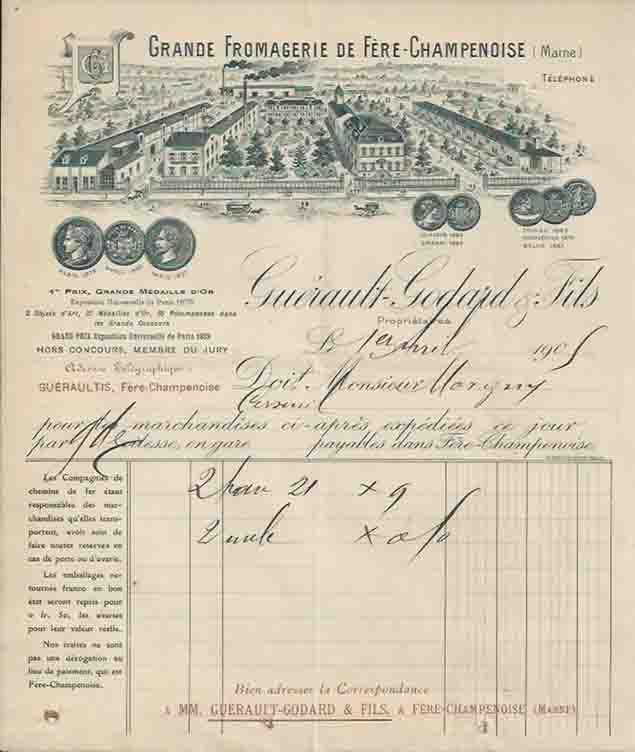 G
GRANDE FROMAGERIE DE FÈRE-CHAMPENOISE (Marne)
TÉLÉPHONE
1er PRIX, GRANDE MÉDAILLE D'OR
Exposition Universelle de Paris 1878
2 Objets d'Art, 21 Médailles d'Or, 98 Récompenses dans
les Grands Concours
GRAND PRIX Exposition Universelle de Paris 1889
HORS-CONCOURS, MEMBRE DU JURY
Adresse Télégraphique :
GUÉRAULTIS, Fère-Champenoise
Guérault-Godard & Fils
Propriétaires
Le 1er Avril 1905
Doit Monsieur
pour les marchandises ci-après, expédiées ce jour
par Vitesse, en gare payables dans Fère-Champenoise
Les Compagnies de
chemins de fer étant
responsables des mar-
chandises qu'elles trans-
portent, avoir soin de
faire toutes réserves en
cas de perte ou d'avarie.
Les emballages re-
tournés franco en bon
état seront repris pour
0 fr. 50, les avariés
pour leur valeur réelle.
Nos traites ne sont
pas une dérogation au
lieu de paiement, qui est
Fère-Champenoise.
2 21 × 9
2 ×
Bien adresser la Correspondance
A MM. GUÉRAULT-GODARD & FILS, A FÈRE-CHAMPENOISE (MARNE)